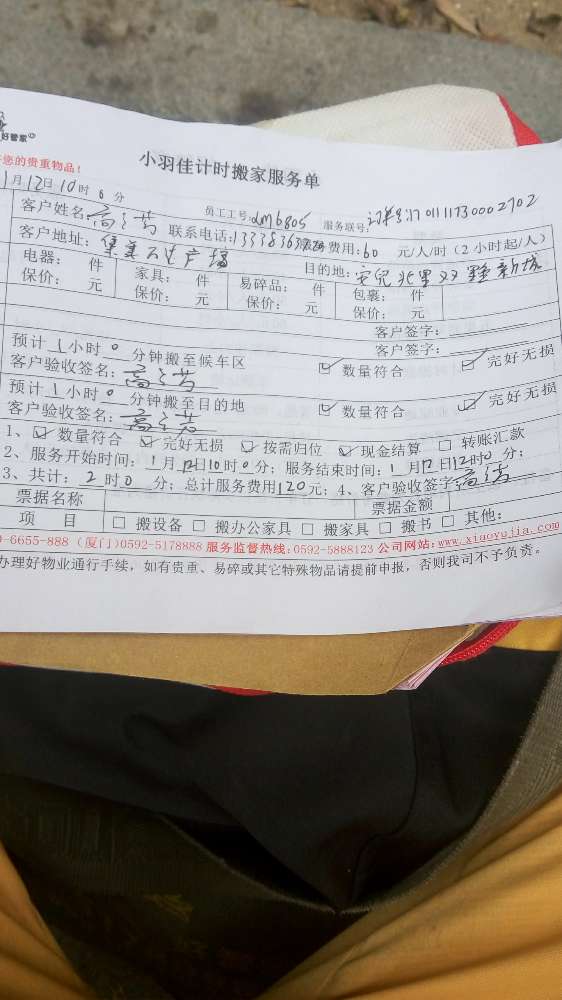 好管家
小羽佳计时搬家服务单
您的贵重物品！
1月12日10时0分
员工工号: 服务联号:
客户姓名: 联系电话: 费用:60 元/人/时(2小时起/人)
客户地址: 集美万达广场 目的地: 安兜北里双 新城
电器: 件 家具: 件 易碎品: 件 包裹: 件
保价: 元 保价: 元 保价: 元 保价: 元
客户签字:
客户签字:
预计1小时0分钟搬至候车区
客户验收签名: ☑数量符合 ☑完好无损
预计1小时0分钟搬至目的地
客户验收签名: ☑数量符合 ☑完好无损
1、☑数量符合 ☑完好无损 ☑按需归位 ☑现金结算 □转账汇款
2、服务开始时间: 1月12日10时0分; 服务结束时间: 1月12日12时0分;
3、共计: 2时0分; 总计服务费用120元; 4、客户验收签字:
票据名称 票据金额
项 目 □搬设备 □搬办公家具 □搬家具 □搬书 □其他:
-6655-888 (厦门)0592-5178888 服务监督热线:0592-5888123 公司网站:www.xiaoyujia.com
办理好物业通行手续, 如有贵重、易碎或其它特殊物品请提前申报, 否则我司不予负责。